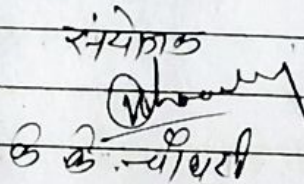 संयोजक
के के. चौधरी